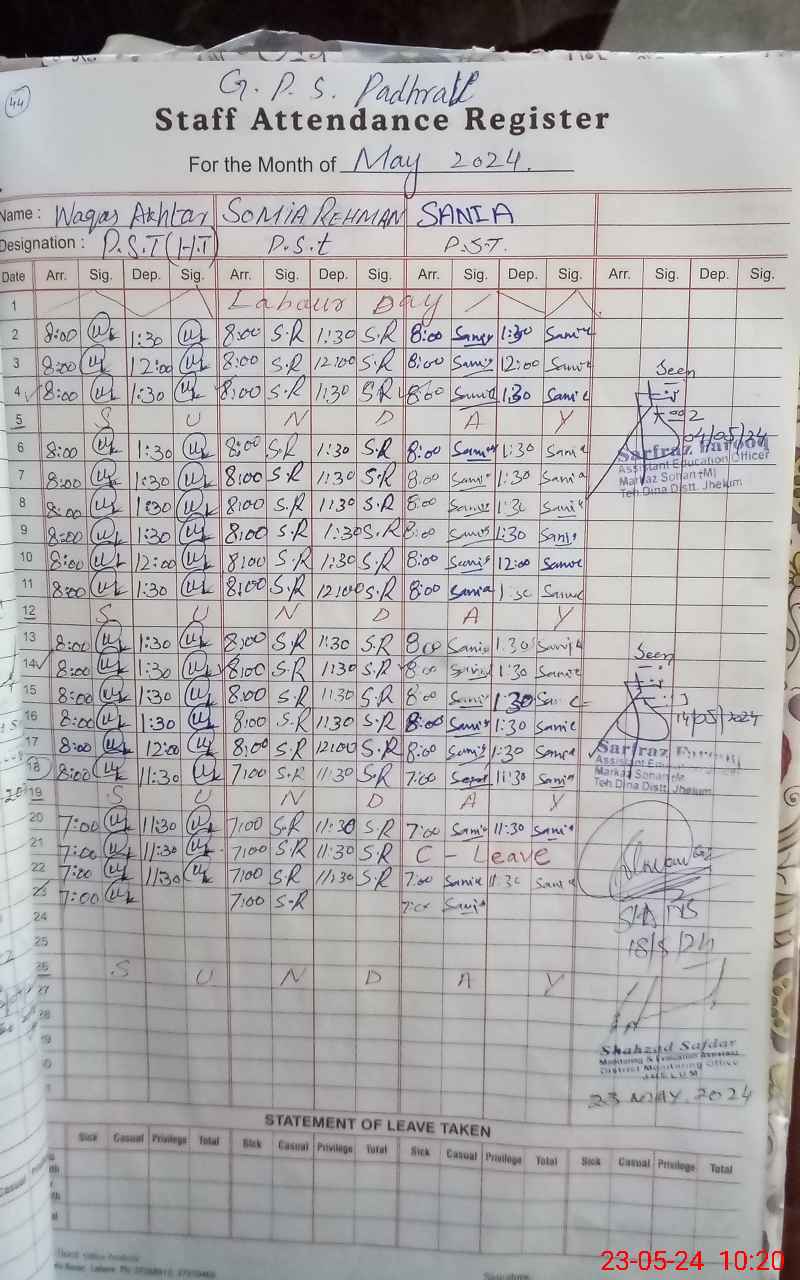 44
G. P. S. Padhral
Staff Attendance Register
For the Month of May 2024.
Name : Waqas Akhtar SOMIA REHMAN SANIA
Designation : P.S.T (H.T) P.S.t P.S.T.
Date Arr. Sig. Dep. Sig. Arr. Sig. Dep. Sig. Arr. Sig. Dep. Sig. Arr. Sig. Dep. Sig.
1 Labour Day
2 8:00 1:30 8:00 S.R 1:30 S.R 8:00 Sania 1:30 Sania
3 8:00 12:00 8:00 S.R 12:00 S.R 8:00 Sania 12:00 Sania Seen
4 8:00 1:30 8:00 S.R 1:30 S.R 8:00 Sania 1:30 Sania
5 S U N D A Y
04/05/24
6 8:00 1:30 8:00 S.R 1:30 S.R 8:00 Sania 1:30 Sania Sarfraz Farooq
Assistant Education Officer
7 8:00 1:30 8:00 S.R 1:30 S.R 8:00 Sania 1:30 Sania Markaz Sohan (M)
Teh Dina Distt. Jhelum
8 8:00 1:30 8:00 S.R 1:30 S.R 8:00 Sania 1:30 Sania
9 8:00 1:30 8:00 S.R 1:30 S.R 8:00 Sania 1:30 Sania
10 8:00 12:00 8:00 S.R 1:30 S.R 8:00 Sania 12:00 Sania
11 8:00 1:30 8:00 S.R 12:00 S.R 8:00 Sania 1:30 Sania
12 S U N D A Y
13 8:00 1:30 8:00 S.R 1:30 S.R 8:00 Sania 1:30 Sania Seen
14 8:00 1:30 8:00 S.R 1:30 S.R 8:00 Sania 1:30 Sania
15 8:00 1:30 8:00 S.R 1:30 S.R 8:00 Sania 1:30 Sania
16 8:00 1:30 8:00 S.R 1:30 S.R 8:00 Sania 1:30 Sania 14/05/2024
17 8:00 12:00 8:00 S.R 12:00 S.R 8:00 Sania 1:30 Sania Sarfraz Farooq
Assistant Education Officer
18 8:00 11:30 7:00 S.R 11:30 S.R 7:00 Sania 11:30 Sania Markaz Sohan (M)
Teh Dina Distt. Jhelum
19 S U N D A Y
20 7:00 11:30 7:00 S.R 11:30 S.R 7:00 Sania 11:30 Sania
21 7:00 11:30 7:00 S.R 11:30 S.R C - Leave
22 7:00 11:30 7:00 S.R 11:30 S.R 7:00 Sania 11:30 Sania
23 7:00 7:00 S.R 7:00 Sania
24
25 18/5/24
26 S U N D A Y
27
28
Shahzad Safdar
Monitoring & Evaluation Assistant
District Monitoring Office
JHELUM
23 MAY 2024
STATEMENT OF LEAVE TAKEN
Sick Casual Privilege Total Sick Casual Privilege Total Sick Casual Privilege Total Sick Casual Privilege Total
23-05-24 10:20